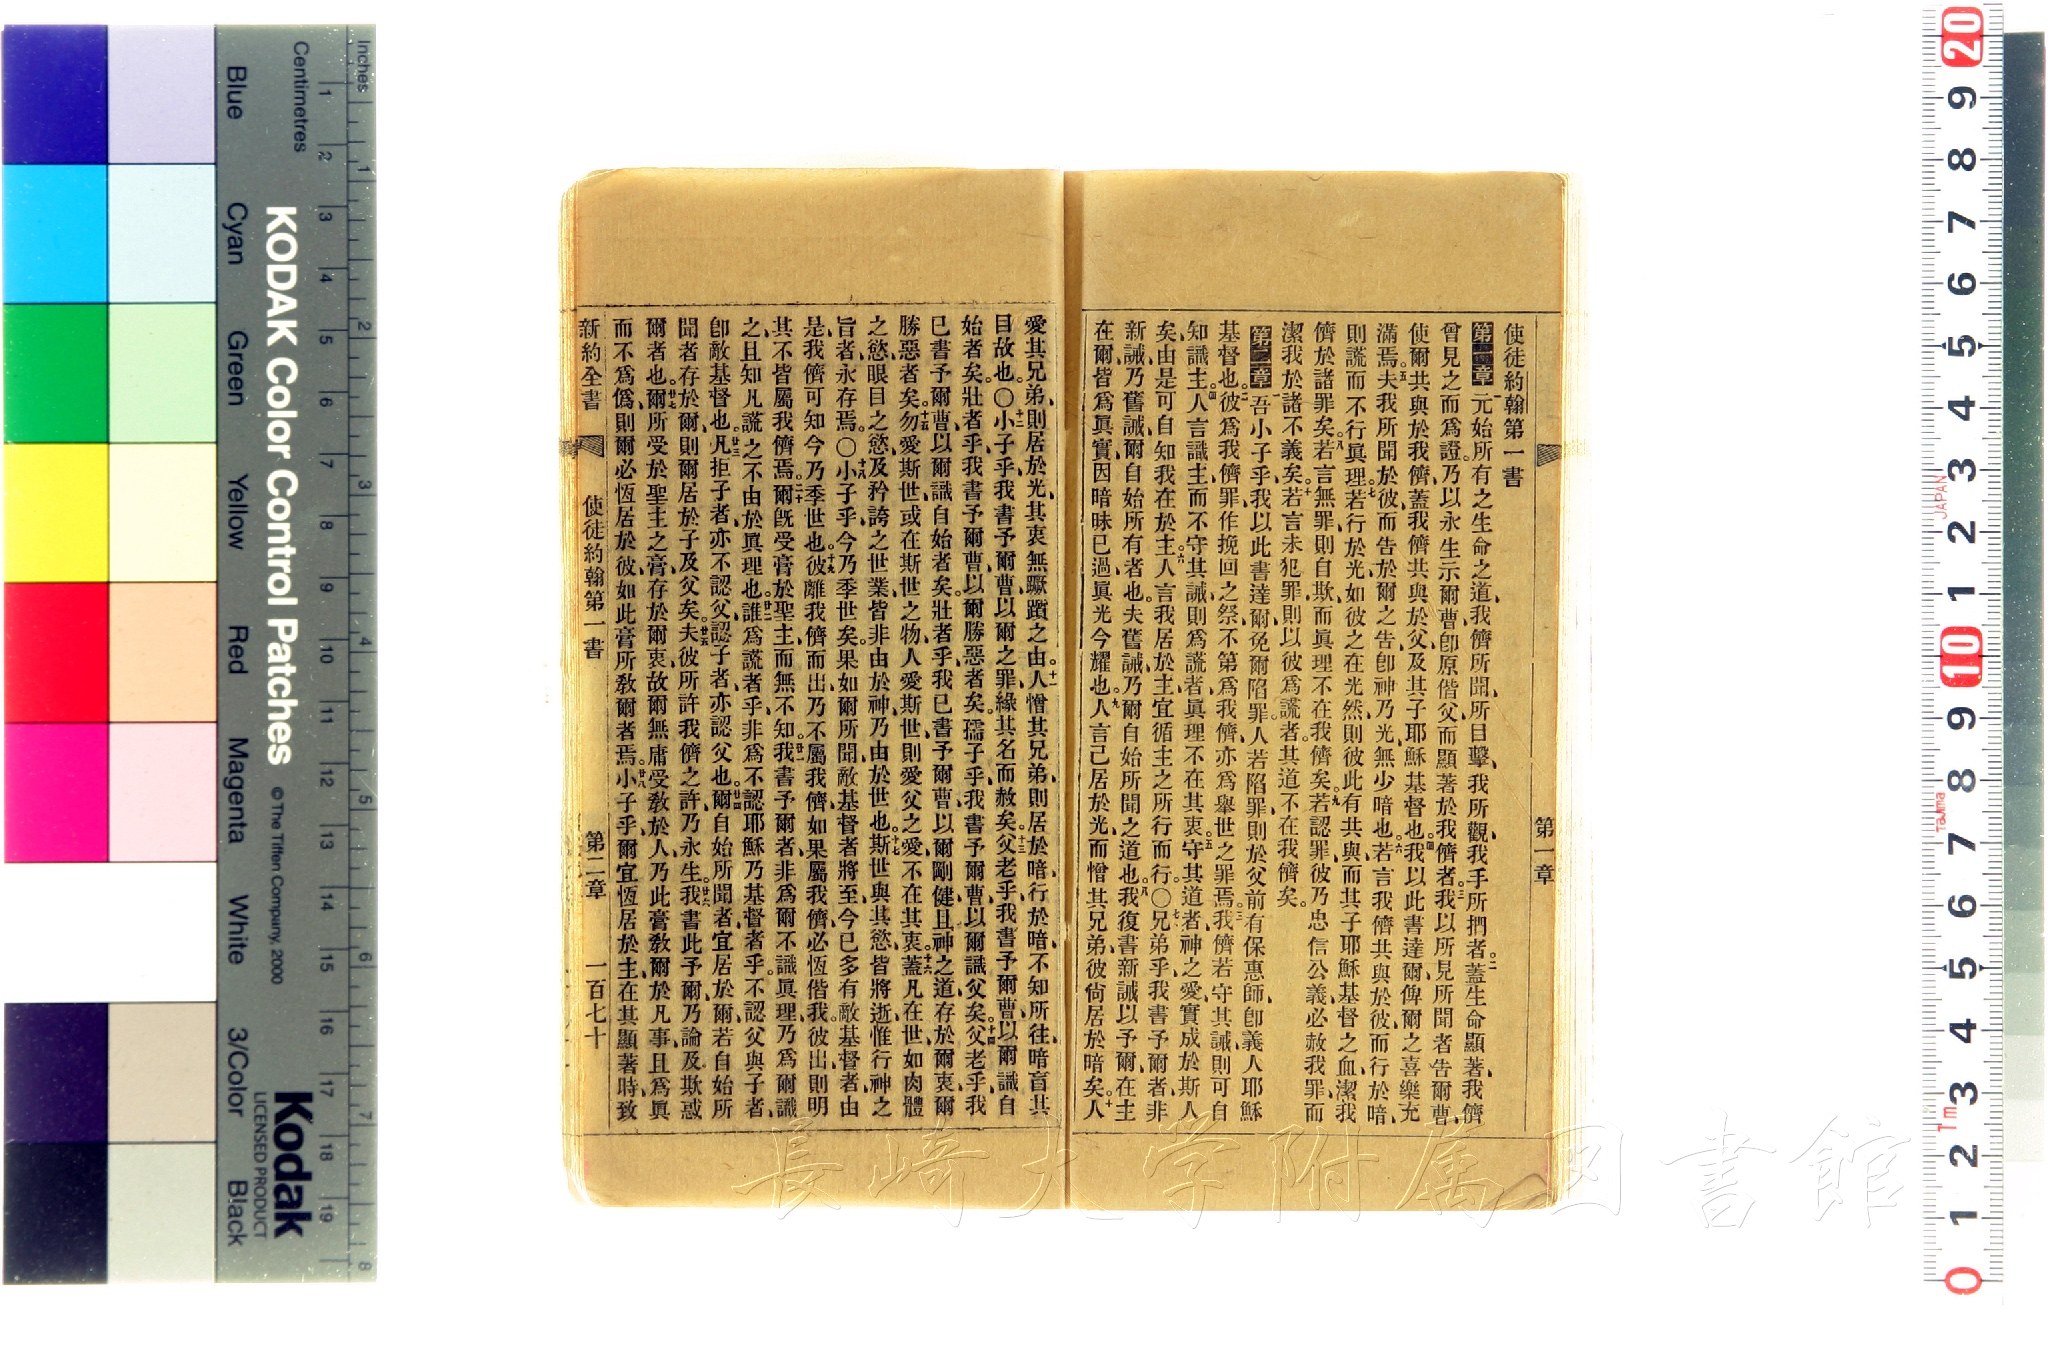 使徒約翰第一書
第一章
第一章 一元始所有之生命之道、我儕所聞、所目擊、我所觀、我手所捫者。二蓋生命顯著、我儕
曾見之而爲證、乃以永生示爾曹、卽原偕父而顯著於我儕者。三我以所見所聞者告爾曹、
使爾共與於我儕、蓋我儕共與於父、及其子耶穌基督也。四我以此書達爾、俾爾之喜樂充
滿焉。五夫我所聞於彼、而告於爾之告、卽神乃光、無少暗也。六若言我儕共與於彼、而行於暗、
則謊而不行眞理。七若行於光、如彼之在光然、則彼此有共與、而其子耶穌基督之血、潔我
儕於諸罪矣。八若言無罪、則自欺、而眞理不在我儕矣。九若認罪、彼乃忠信公義、必赦我罪、而
潔我於諸不義矣。十若言未犯罪、則以彼爲謊者、其道不在我儕矣。
第二章 一吾小子乎、我以此書達爾、免爾陷罪。人若陷罪、則於父前有保惠師、卽義人耶穌
基督也。二彼爲我儕罪作挽回之祭、不第爲我儕、亦爲舉世之罪焉。三我儕若守其誡、則可自
知識主。四人言識主、而不守其誡、則爲謊者、眞理不在其衷。五守其道者、神之愛實成於斯人
矣、由是可自知我在於主。六人言我居於主、宜循主之所行而行。〇七兄弟乎、我書予爾者、非
新誡、乃舊誡、爾自始所有者也、夫舊誡乃爾自始所聞之道也。八我復書新誡以予爾、在主
在爾、皆爲眞實、因暗昧已過、眞光今耀也。九人言己居於光、而憎其兄弟、彼尙居於暗矣。十人
愛其兄弟、則居於光、其衷無躓蹶之由。十一人憎其兄弟、則居於暗、行於暗、不知所往、暗盲其
目故也。〇十二小子乎、我書予爾曹、以爾之罪緣其名而赦矣。十三父老乎、我書予爾曹、以爾識自
始者矣、壯者乎、我書予爾曹、以爾勝惡者矣。孺子乎、我書予爾曹、以爾識父矣。十四父老乎、我
已書予爾曹、以爾識自始者矣、壯者乎、我已書予爾曹、以爾剛健、且神之道存於爾衷、爾
勝惡者矣。十五勿愛斯世、或在斯世之物、人愛斯世、則愛父之愛不在其衷。十六蓋凡在世、如肉體
之慾、眼目之慾、及矜誇之世業、皆非由於神、乃由於世也。十七斯世與其慾皆將逝、惟行神之
旨者永存焉。〇十八小子乎、今乃季世矣、果如爾所聞、敵基督者將至、今已多有敵基督者、由
是我儕可知今乃季世也。十九彼離我儕而出、乃不屬我儕、如果屬我儕、必恆偕我、彼出則明
其不皆屬我儕焉。二十爾旣受膏於聖主、而無不知。廿一我書予爾者、非爲爾不識眞理、乃爲爾識
之、且知凡謊之不由於眞理也。廿二誰爲謊者乎、非爲不認耶穌乃基督者乎、不認父與子者、
卽敵基督也。廿三凡拒子者、亦不認父、認子者、亦認父也。廿四爾自始所聞者、宜居於爾、若自始所
聞者存於爾、則爾居於子及父矣。廿五夫彼所許我儕之許、乃永生。廿六我書此予爾、乃論及欺惑
爾者也。廿七爾所受於聖主之膏、存於爾衷、故爾無庸受敎於人、乃此膏敎爾於凡事、且爲眞
而不爲僞、則爾必恆居於彼、如此膏所敎爾者焉。廿八小子乎、爾宜恆居於主、在其顯著時、致
新約全書 使徒約翰第一書 第二章 一百七十
Inches
Centimetres
Blue Cyan Green Yellow Red Magenta White 3/Color Black
KODAK Color Control Patches © The Tiffen Company, 2000
Kodak
LICENSED PRODUCT
1 2 3 4 5 6 7 8
1 2 3 4 5 6 7 8 9 10 11 12 13 14 15 16 17 18 19
20 9 8 7 6 5 4 3 2 1 10 9 8 7 6 5 4 3 2 1 0
JAPAN
Tajima
Tm
長崎大学附属図書館